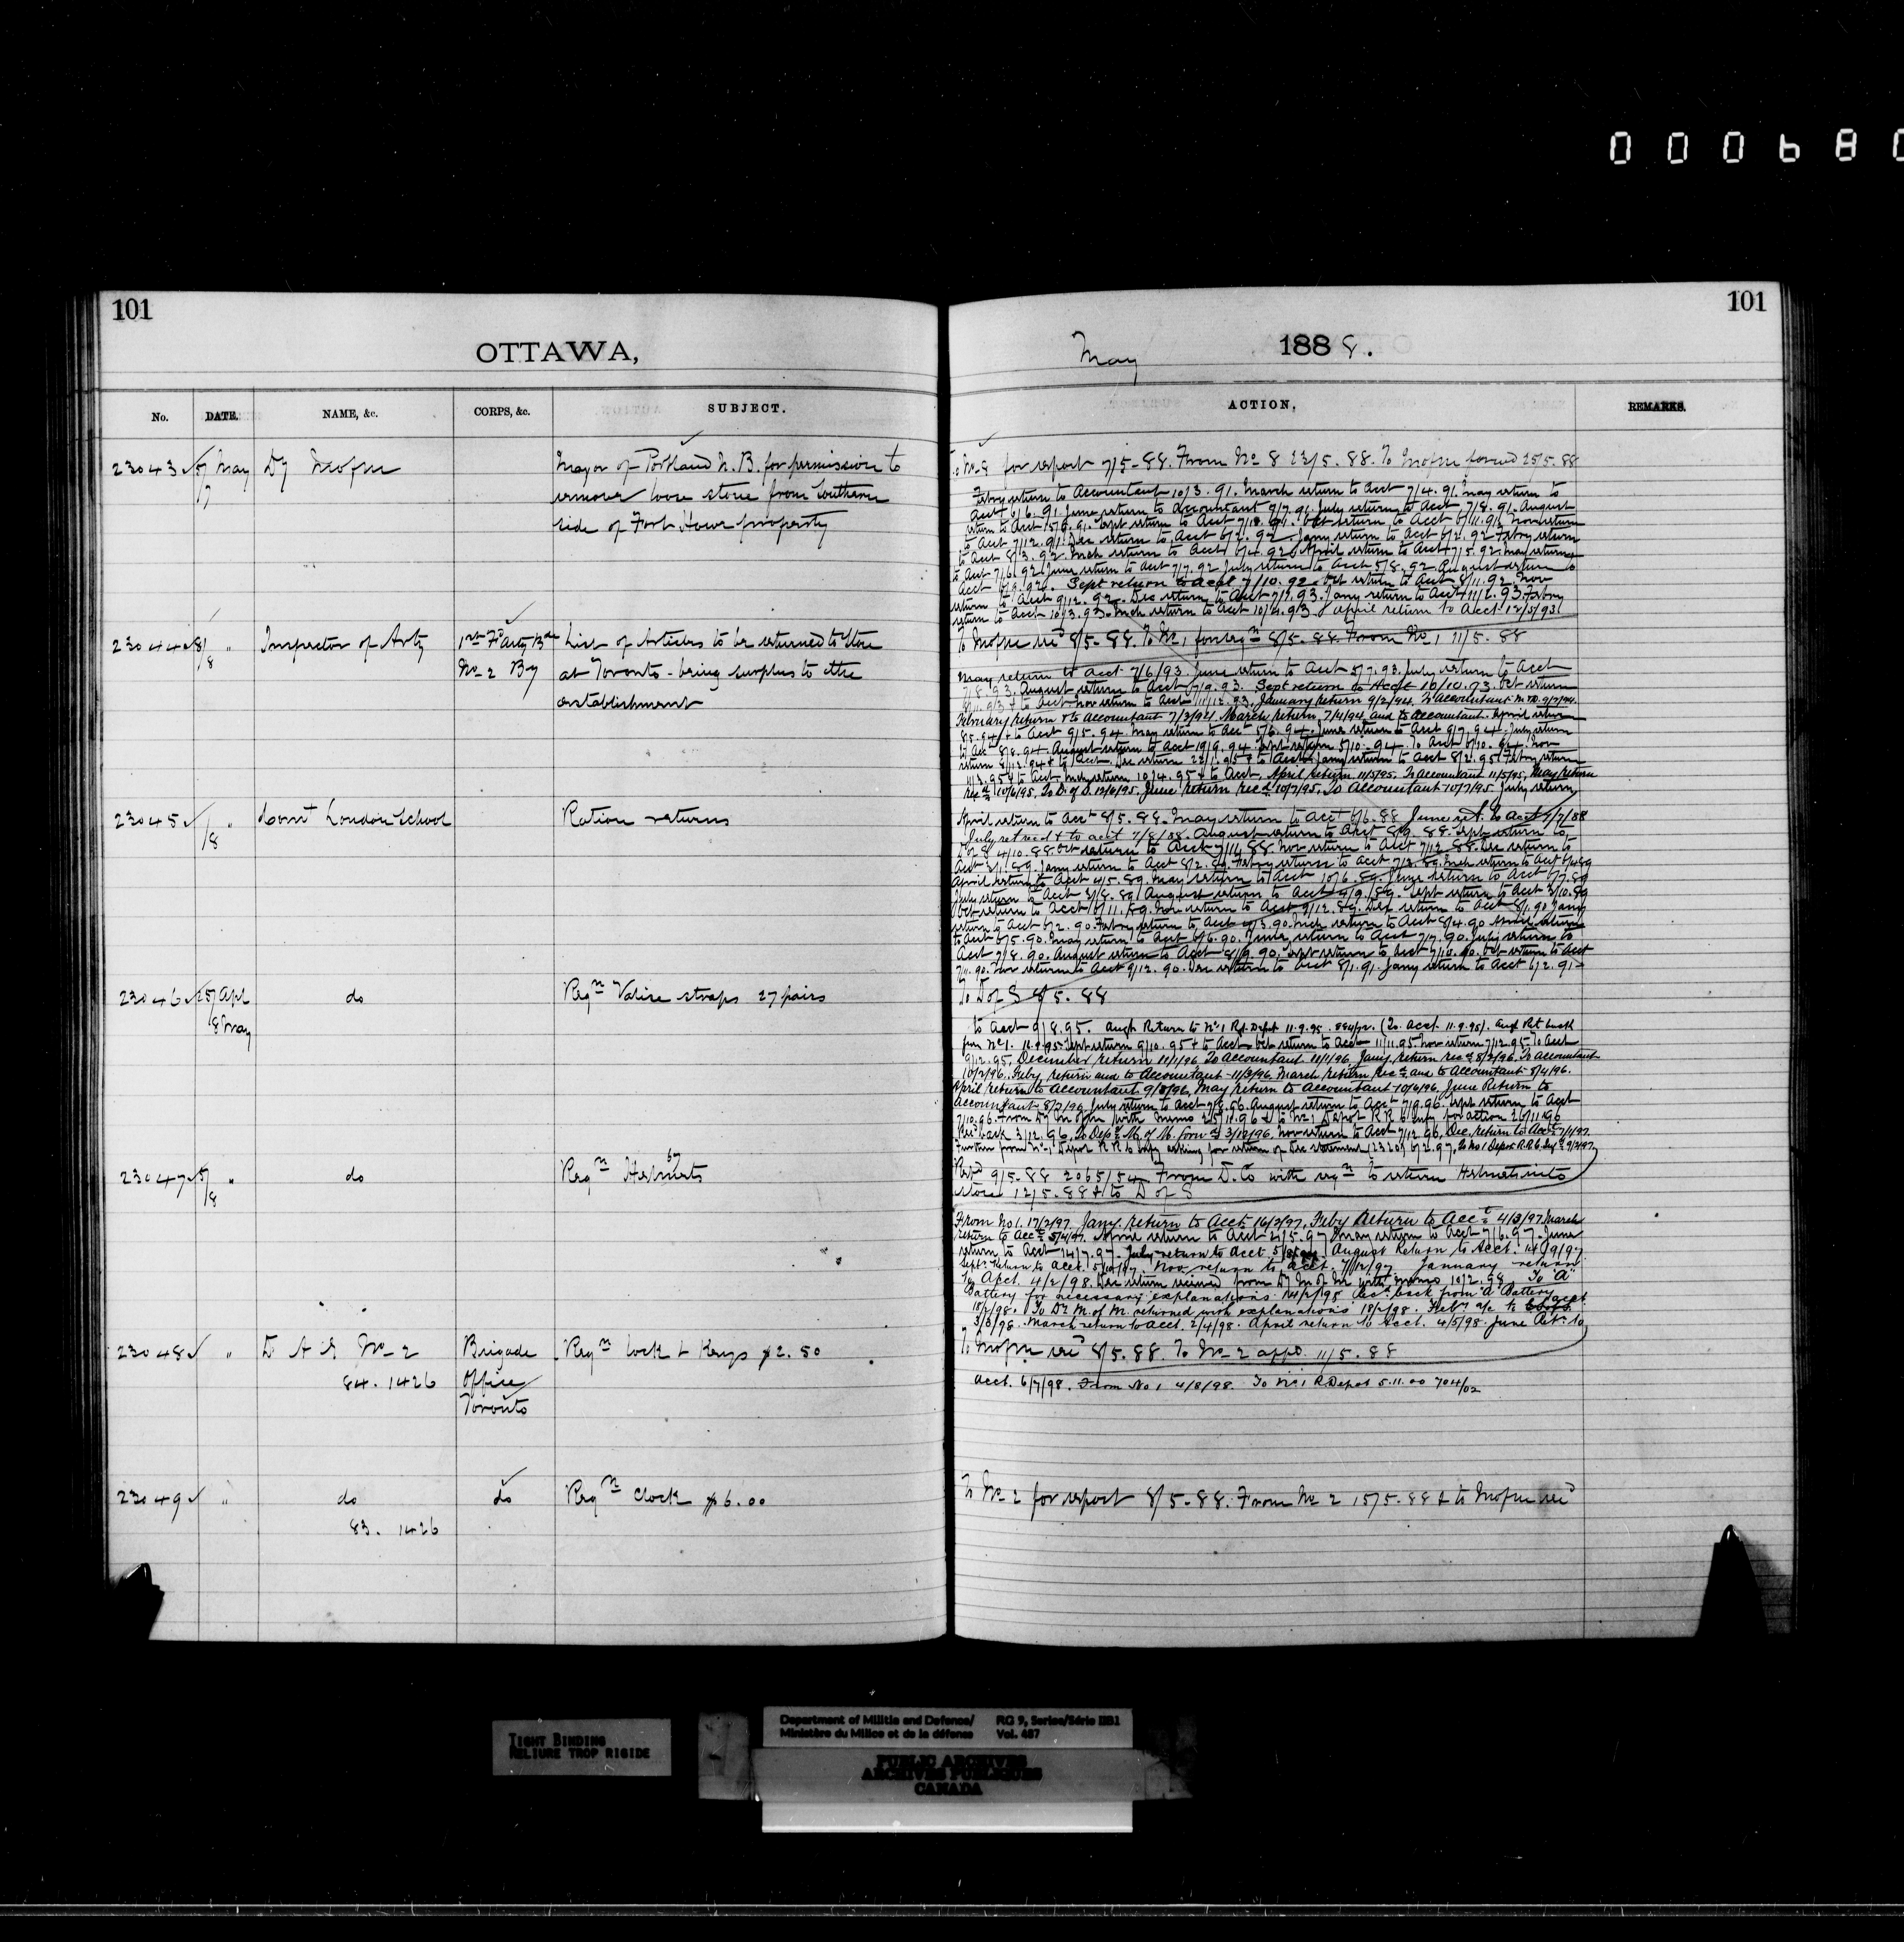 000680
101
OTTAWA,
No. DATE. NAME, &c. CORPS, &c. SUBJECT.
23043 5/7 May Dy Mofm Mayor of Portland N.B. for permission to
remove loose stone from Southern
side of Fort Howe property
23044 8/8 " Inspector of Arty 1st Fd Arty Bde List of Articles to be returned to Store
No 2 By at Toronto - being surplus to the
establishment
23045 /8 " Comt London School Ration returns
23046 25/ Apl do Reqn Valise straps 27 pairs
8 May
23047 5/8 " do Reqn 67 Helmets
23048 " D A G No 2 Brigade Reqn lock & Keys $2.50
84. 1426 Office
Toronto
23049 " do do Reqn Clock $6.00
83. 1426
101
May 1888.
ACTION. REMARKS.
To No 8 for report 7/5-88. From No 8 23/5.88. To Mofm forwd 25/5.88
Febry return to Accountant 10/3.91. March return to Acct 7/4.91. May return to
Acct 6/6.91. June return to Accountant 9/7.91. July return to Acct 7/8.91. August
return to Acct 15/9.91. Sept return to Acct 7/10.91. Oct return to Acct 6/11.91. Nov return
to Acct 7/12.91. Dec return to Acct 6/2.92. Jany return to Acct 6/2.92 Febry return
to Acct 8/3.92. Mch return to Acct 6/4.92. April return to Acct 7/5.92. May return
to Acct 7/6.92. June return to Acct 7/7.92 July return to Acct 5/8.92. August return to
Acct 6/9.92. Sept return to Acct 7/10.92. Oct return to Acct 8/11.92. Nov
return to Acct 9/12.92. Dec return to Acct 7/1.93. Jany return to Acct 11/2.93. Febry
return to Acct 10/3.93. Mch return to Acct 10/4.93. April return to Acct 12/5/93
To Mofm recd 8/5-88. To No 1 for reqn 8/5.88. From No 1 11/5-88
May return to Acct 7/6/93 June return to Acct 5/7.93. July return to Acct
7/8.93. August return to Acct 6/9.93. Sept return to Acct 10/10.93. Oct return
6/11.93 & to Acct. Nov return to Acct 11/12.93. January return 9/2/94. To Accountant
February return & to Accountant 7/3/94. March return 7/4/94 and to Accountant. April return
8/5.94 & to Acct 9/5.94. May return to Acct 5/6.94. June return to Acct 9/7.94. July return
to Acct 8/8.94. August return to Acct 19/9.94. Sept return 5/10.94. To Acct 6/10.94. Nov
return 8/12.94 & to Acct. Dec return 22/1.95 & to Acct. Jany return to Acct 8/2.95. Febry return
11/3.95 & to Acct. Mch return 10/4.95 & to Acct. April return 11/5/95. To Accountant 11/5/95. May return
recd 10/6/95. To D. of S. 12/6/95. June return recd 10/7/95. To Accountant 10/7/95. July return
April return to Acct 8/5.88. May return to Acct 6/6.88 June ret. to Acct 9/7/88
July ret recd & to acct 7/8/88. August return to Acct 8/9.88. Sept return to
D of S 4/10.88. Oct return to Acct 7/11.88. Nov return to Acct 7/12.88. Dec return to
Acct 3/1.89. Jany return to Acct 8/2.89. Febry return to acct 7/3.89. Mch return to Acct 6/4.89
April return to Acct 4/5.89. May return to Acct 10/6.89. June return to Acct 6/7.89
July return to Acct 3/8.89. August return to Acct 9/9.89. Sept return to Acct 3/10.89
Oct return to Acct 6/11.89. Nov return to Acct 9/12.89. Dec return to Acct 8/1.90 Jany
return to Acct 6/2.90. Febry return to Acct 6/3.90. Mch return to Acct 8/4.90 April return
to Acct 6/5.90. May return to Acct 6/6.90. June return to Acct 7/7.90. July return to
Acct 7/8.90. August return to Acct 8/9.90. Sept return to Acct 7/10.90. Oct return to Acct
7/11.90. Nov return to Acct 9/12.90. Dec return to Acct 8/1.91. Jany return to Acct 6/2.91
To D of S 8/5.88
to Acct 9/8.95. Augt Return to No 1 Rgt. Depot 11.9.95. (To acct. 11.9.95). Augt Ret back
from No 1. Sept return 9/10.95 & to Acct. Oct return to Acct 11/11.95. Nov return 7/12.95. To Acct
9/12.95. December return 11/1/96 To Accountant 11/1/96. Jany return recd 8/2/96. To Accountant
10/2/96. Feby return and to Accountant 11/3/96. March return recd and to Accountant 8/4/96.
April return to Accountant 9/5/96. May return to Accountant 10/6/96. June Return to
Accountant 8/7/96 July return to Acct 7/8.96. August return to Acct 7/9.96. Sept return to Acct
7/10.96. From Dy M of M with memo 25/11.96 & to No 1 Depot RR C Infy for action 26/11.96
Recd back 3/12.96. To Depy M. of M. forwd 3/12/96. Nov return to Acct 7/12.96. Dec return to Acct 7/1/97.
Further from No 1 Depot R R C Infy asking for return of Dec statement (2320) 6/2.97. To No 1 Depot R.R.C. Infy 9/2/97
Repd 9/5.88 2065/54 From D. Co with reqn to return Helmets into
store 12/5.88 & to D of S
From No 1. 17/2/97. Jany return to Acct 16/2/97. Feby Return to Acct 4/3/97. March
return to Acct 5/4/97. April return to Acct 2/5.97 May return to Acct 7/6.97. June
return to Acct 14/7.97. July return to Acct August Return to Acct. 14/9/97.
Sept. Return to Acct. 5/10/97. Nov. return to Acct. 7/12/97 January return
to Acct. 4/2/98. Dec return received from Dy M of M with memo 10/2.98 To "A"
Battery for necessary explanations 14/2/98 Recd back from "A" Battery
18/2/98. To Dy M. of M. returned with explanations 18/2/98. Feby a/c to acct
3/3/98. March return to Acct. 2/4/98. April return to Acct. 4/5/98. June Retn to
To Mofm recd 8/5.88. To No 2 appd. 11/5.88
Acct. 6/7/98. From No 1 4/8/98. To No 1 R Depot 5.11.00 704/02
To No 2 for report 8/5-88. From No 2 15/5-88 & to Mofm recd
TIGHT BINDING
RELIURE TROP RIGIDE
Department of Militia and Defence/ RG 9, Series/Série IIB1
Ministère du Milice et de la défense Vol. 487
PUBLIC ARCHIVES
ARCHIVES PUBLIQUES
CANADA